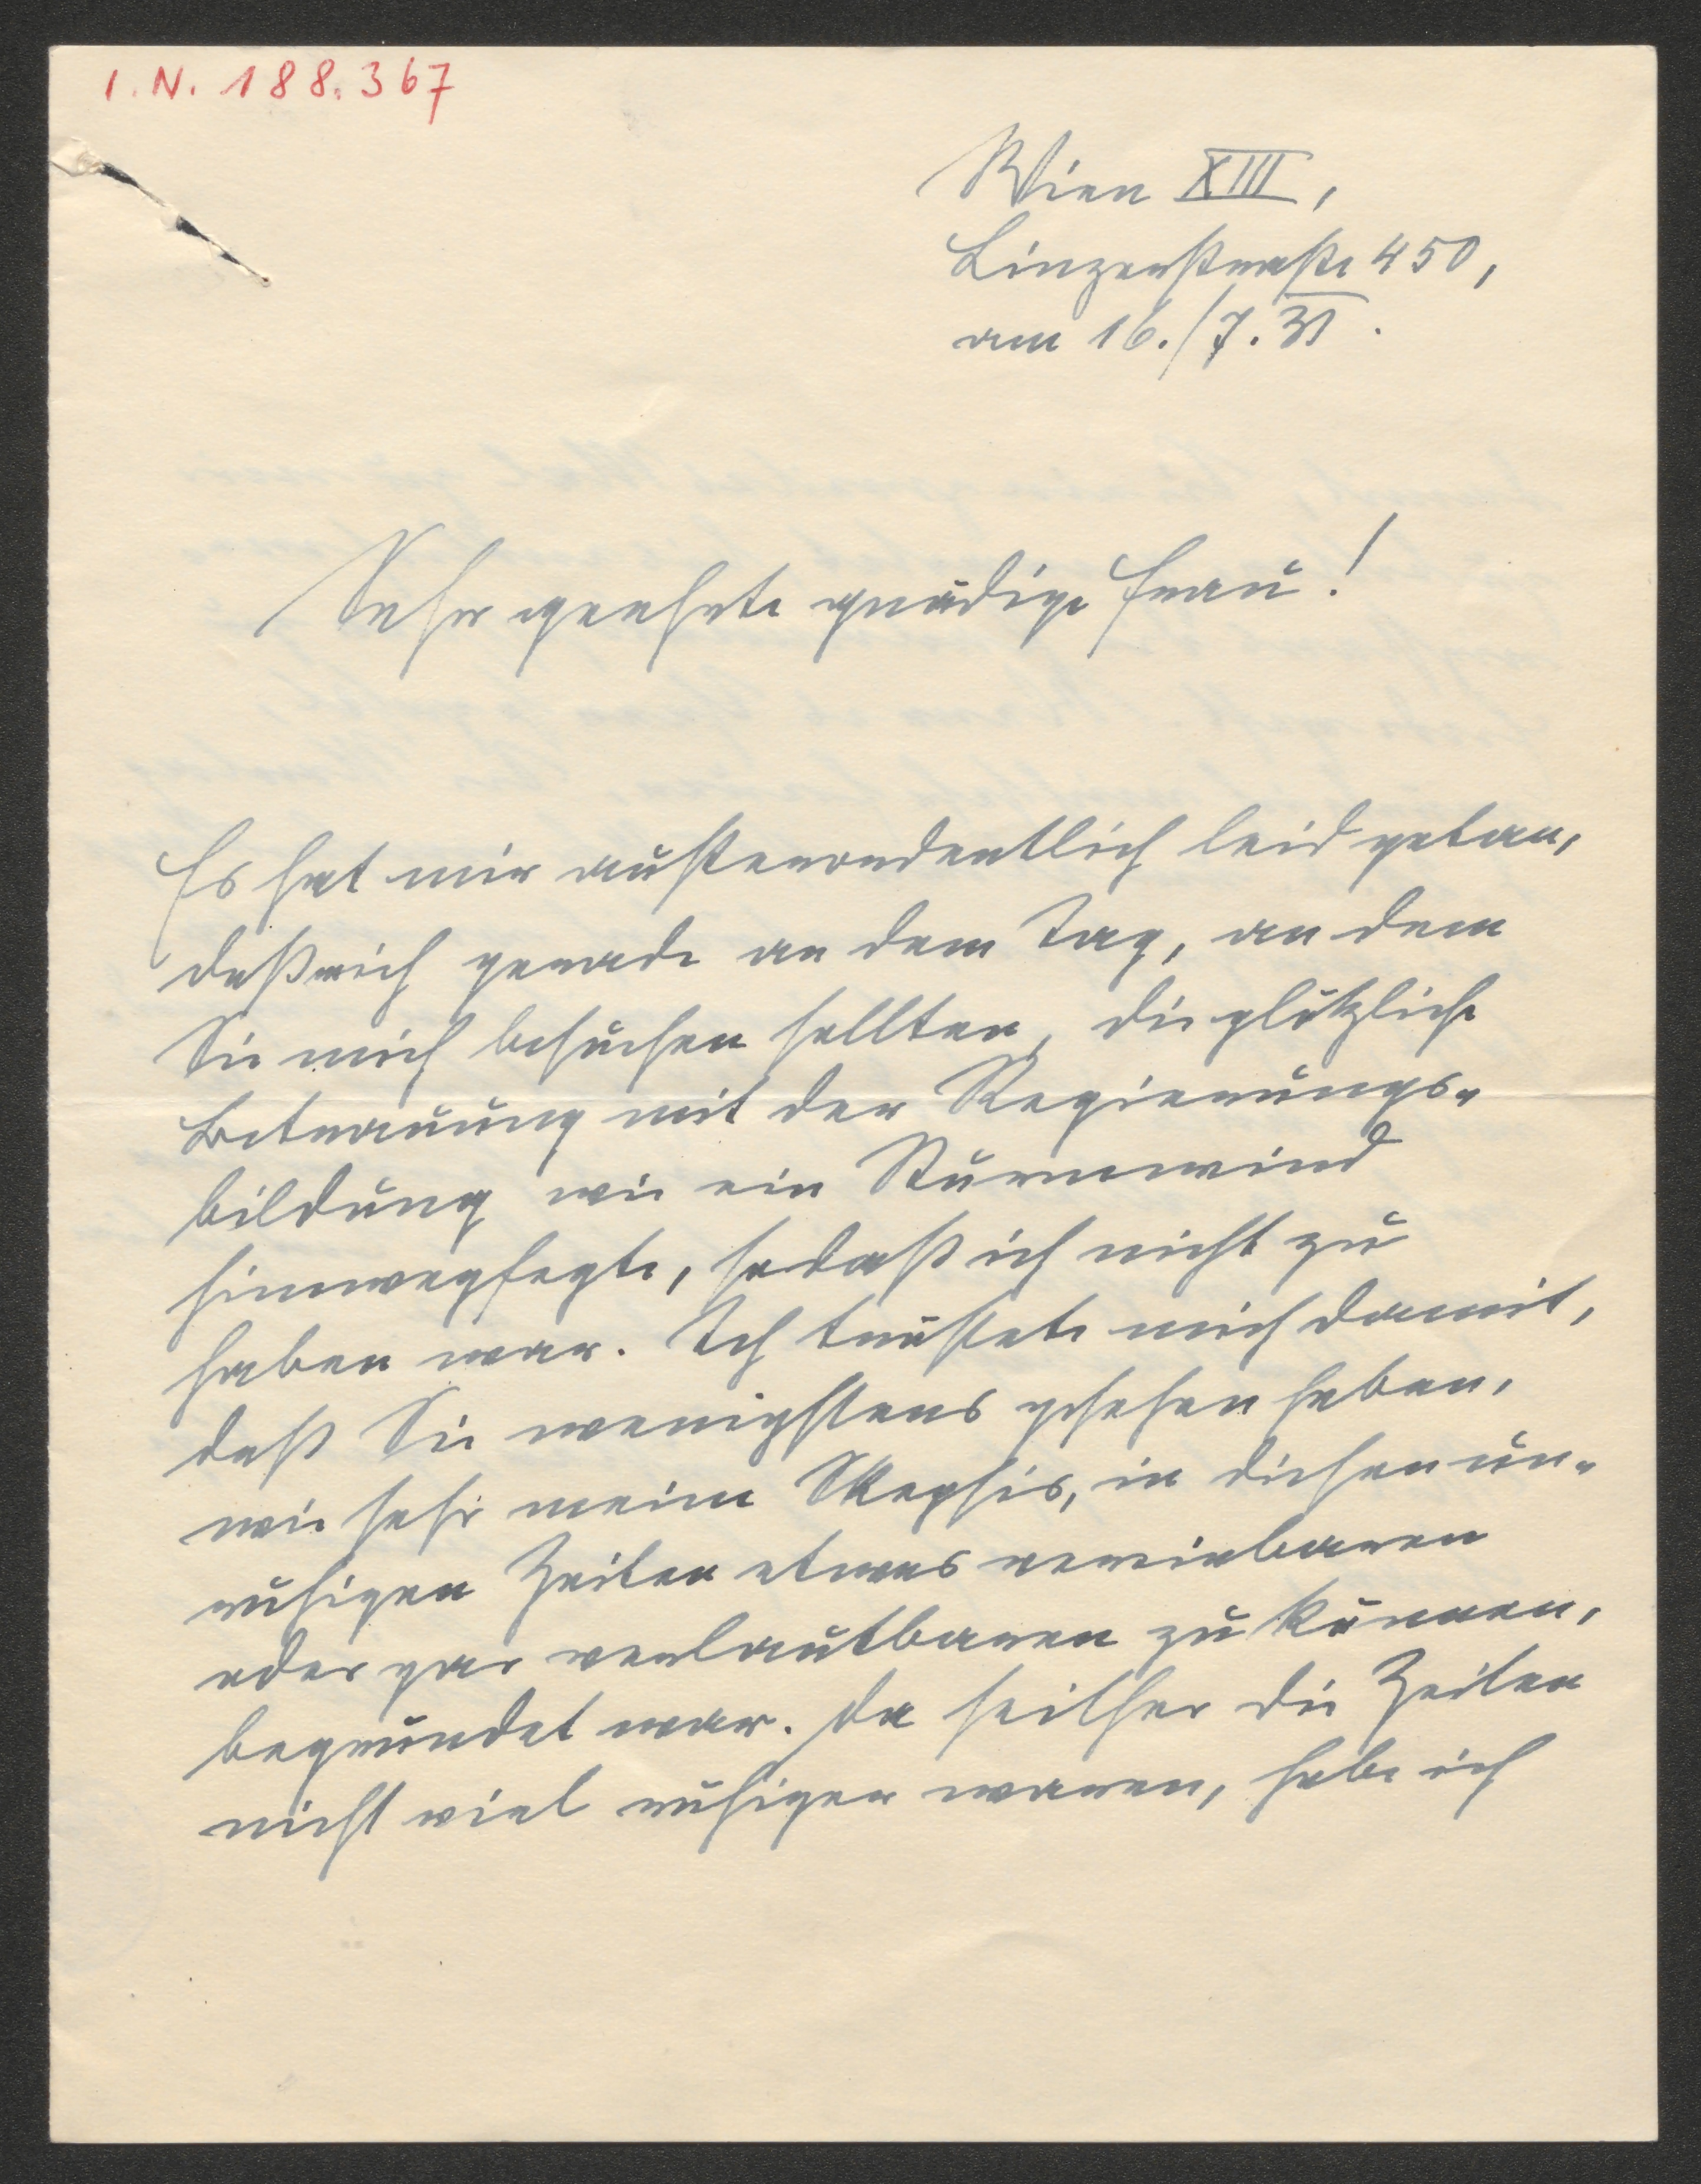 I. N. 188.367
Wien XIII,
Linzerstraße 450,
am 16./7. 31.
Sehr geehrte gnädige Frau!
Es hat mir außerordentlich leid getan,
daß mich gerade an dem Tag, an dem
Sie mich besuchen sollten, die plötzliche
Betrauung mit der Regierungs-
bildung wie ein Sturmwind
hinwegfegte, sodaß ich nicht zu
haben war. Ich tröstete mich damit,
daß Sie wenigstens gesehen haben,
wie sehr meine Skepsis, in diesen un-
ruhigen Zeiten etwas vereinbaren
oder gar verlautbaren zu können,
begründet war. Da seither die Zeiten
nicht viel ruhiger waren, habe ich